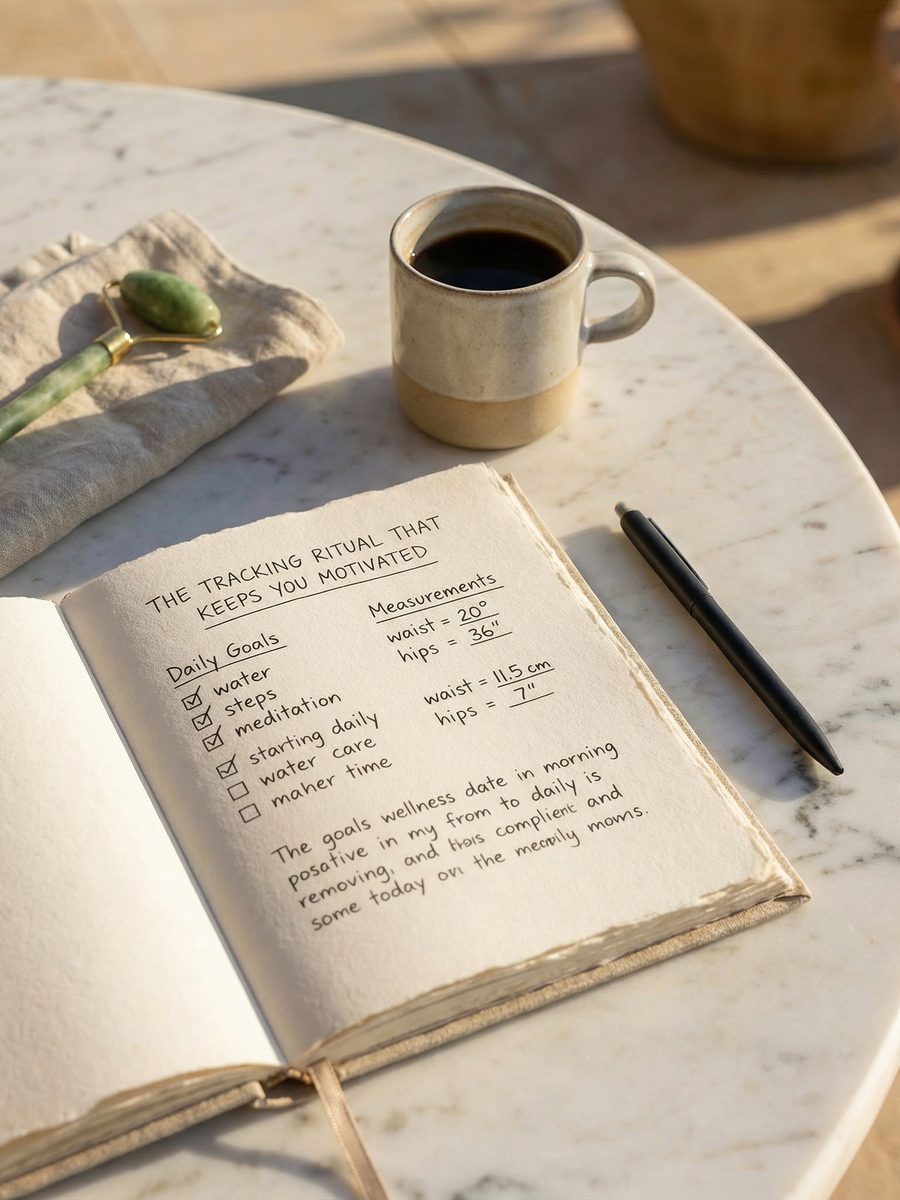 THE TRACKING RITUAL THAT
KEEPS YOU MOTIVATED
Daily Goals
water
steps
meditation
starting daily
water care
maher time
Measurements
waist = 20°
hips = 36"
waist = 11.5 cm
hips = 7"
The goals wellness date in morning
posative in my from to daily is
removing, and this complient and
some today on the mecarily moms.